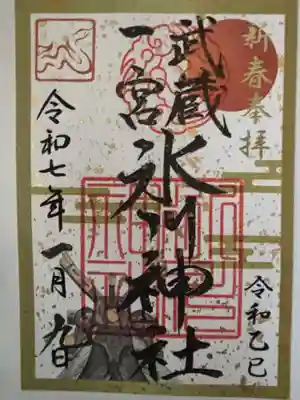 新春奉拝
武蔵
一宮
氷川神社
令和乙巳
令和七年一月九日